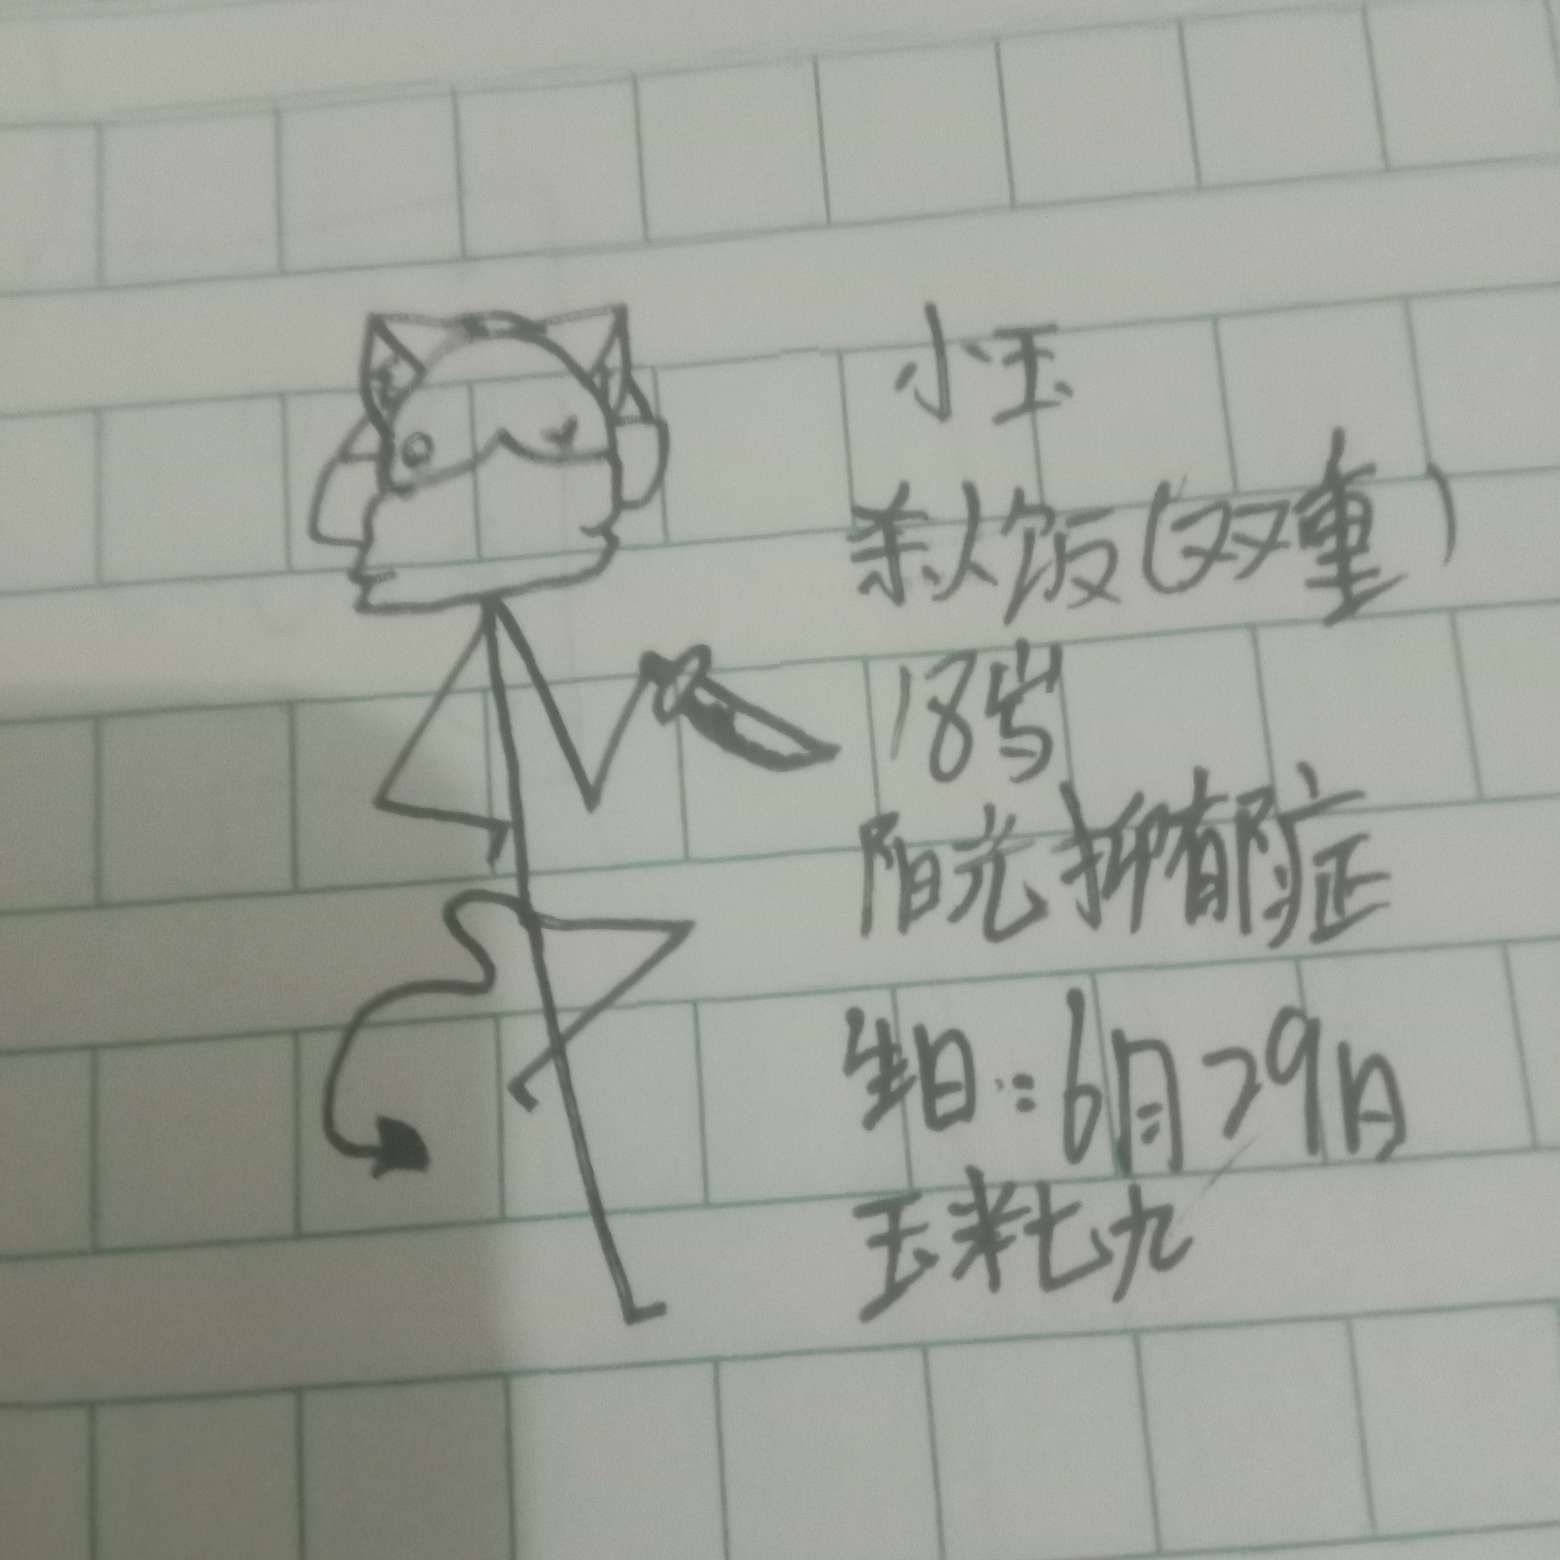 小玉
杀人饭(双重)
18岁
阳光抑郁症
生日::6月29日
玉米七九